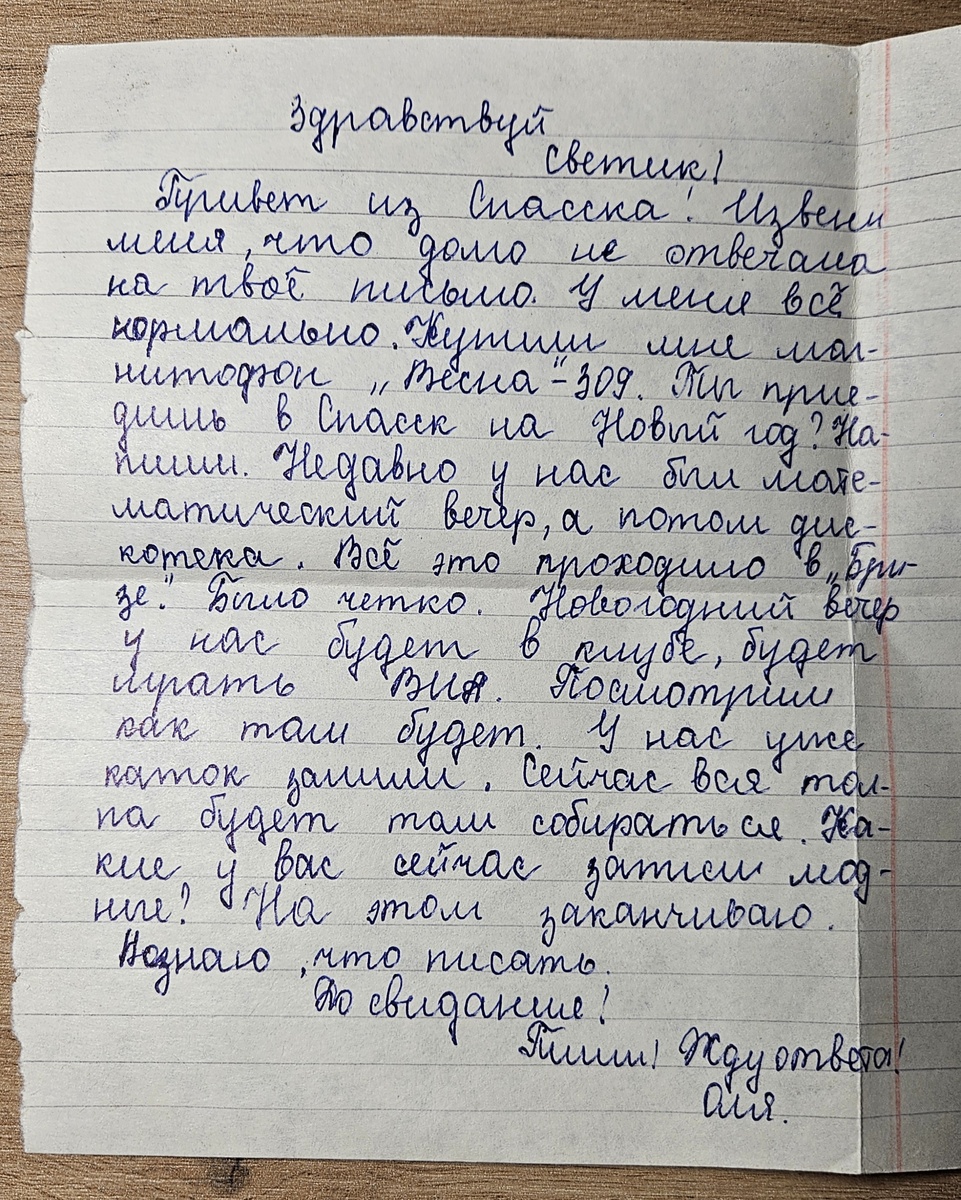 Здравствуй
Светик!
Привет из Спасска! Извени
меня, что долго не отвечала
на твоё письмо. У меня всё
нормально. Купили мне маг-
нитофон „Весна"-309. Ты прие-
дишь в Спасск на Новый год? На-
пиши. Недавно у нас был мате-
матический вечер, а потом дис-
котека. Всё это проходило в „Бри-
зе". Было четко. Новогодний вечер
у нас будет в клубе, будет
играть ВИА. Посмотрим
как там будет. У нас уже
каток залили. Сейчас вся тол-
па будет там собираться. Ка-
кие у вас сейчас записи мод-
ные? На этом заканчиваю.
Незнаю, что писать.
До свидание!
Пиши! Жду ответа!
Оля.